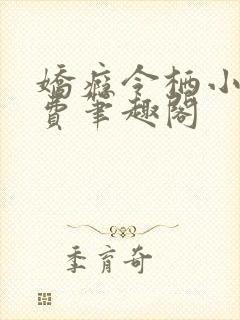 嬌癡令栖小
費筆趣閣
季育奇